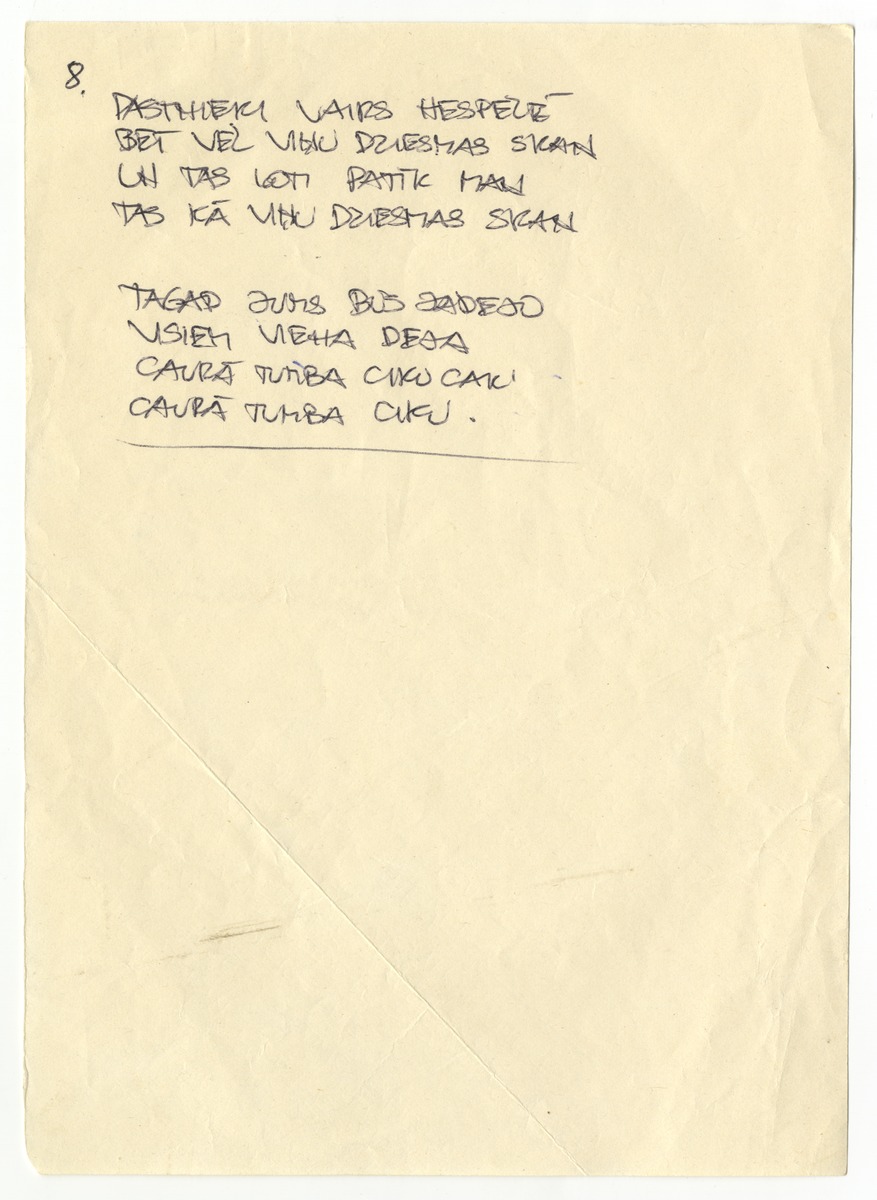 8.
PASTNIEKI VAIRS NESPĒLĒ
BET VĒL VIŅU DZIESMAS SKAN
UN TAS ĻOTI PATĪK MAN
TAS KĀ VIŅU DZIESMAS SKAN
TAGAD JUMS BŪS JĀDEJO
VISIEM VIENA DEJA
CAURĀ TUMBA CIKU CAKU
CAURĀ TUMBA CIKU.